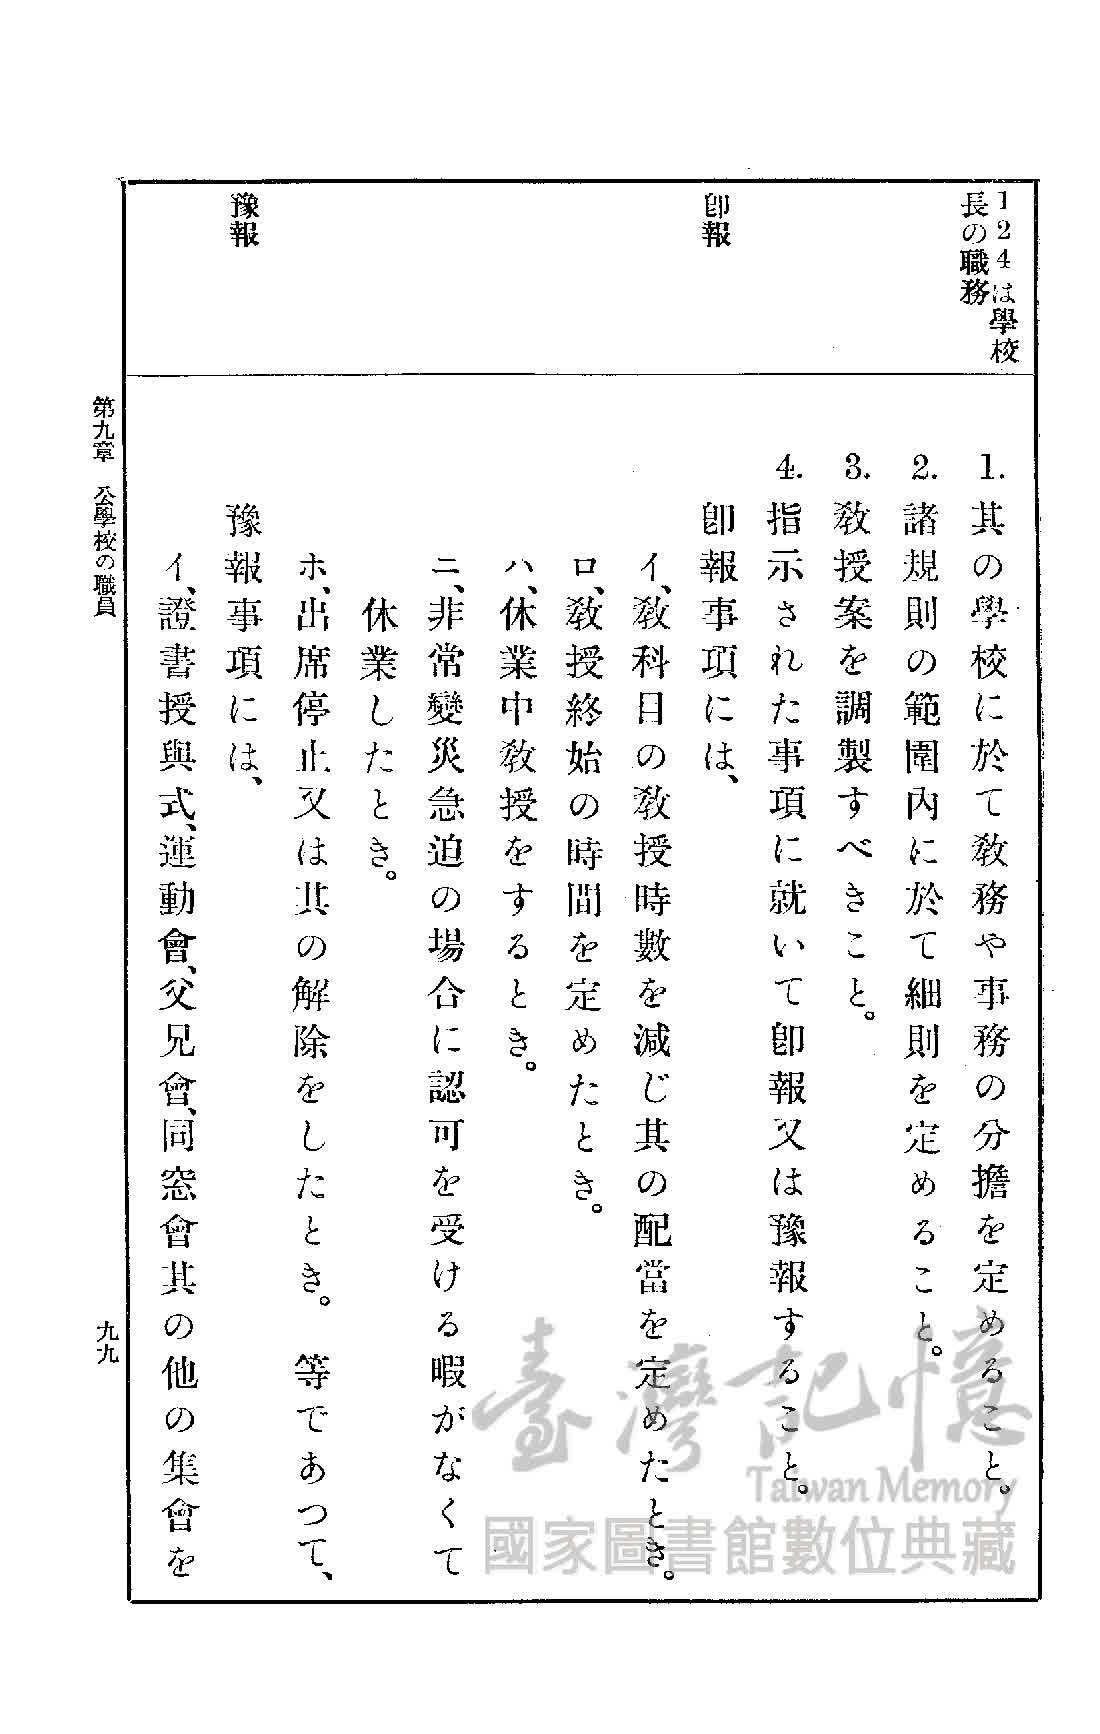 124は學校
長の職務
卽報
豫報
1. 其の學校に於て敎務や事務の分擔を定めること。
2. 諸規則の範圍內に於て細則を定めること。
3. 敎授案を調製すべきこと。
4. 指示された事項に就いて卽報又は豫報すること。
卽報事項には、
イ、敎科目の敎授時數を減じ其の配當を定めたとき。
ロ、敎授終始の時間を定めたとき。
ハ、休業中敎授をするとき。
ニ、非常變災急迫の場合に認可を受ける暇がなくて
休業したとき。
ホ、出席停止又は其の解除をしたとき。 等であつて、
豫報事項には、
イ、證書授與式、運動會、父兄會、同窓會其の他の集會を
第九章 公學校の職員
九九
臺灣記憶
Taiwan Memory
國家圖書館數位典藏